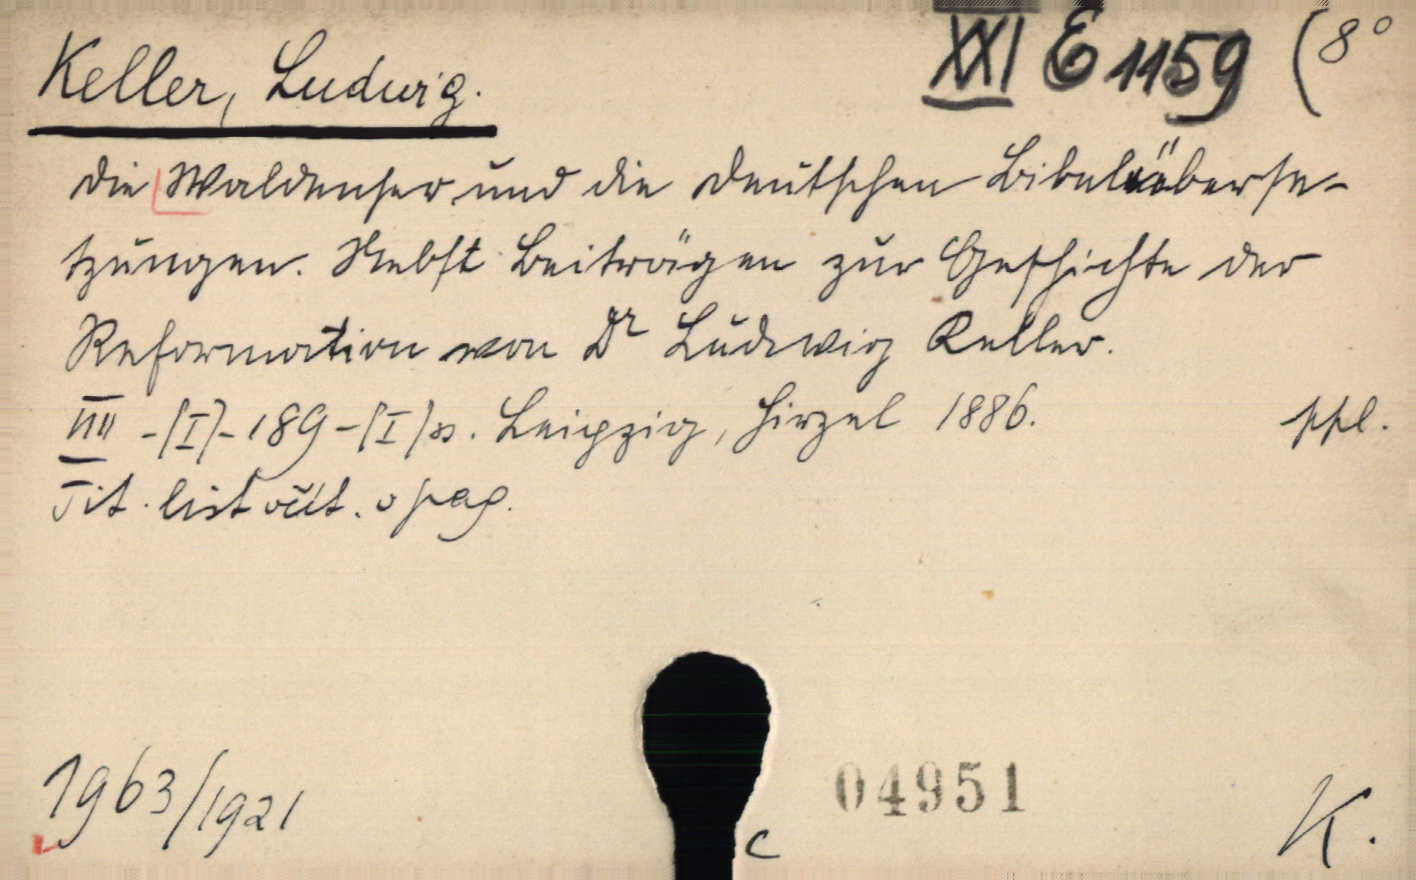 Keller, Ludwig.
XXI E 1159 (8°
Die Waldenser und die deutschen Bibelüberse-
tzungen. Nebst Beiträgen zur Geschichte der
Reformation von Dr Ludwig Keller.
-(I)-189-(I) s. Leipzig, Hirzel 1886. ppl.
Tit. list počít. v pag.
1963/1921
04951
c
K.